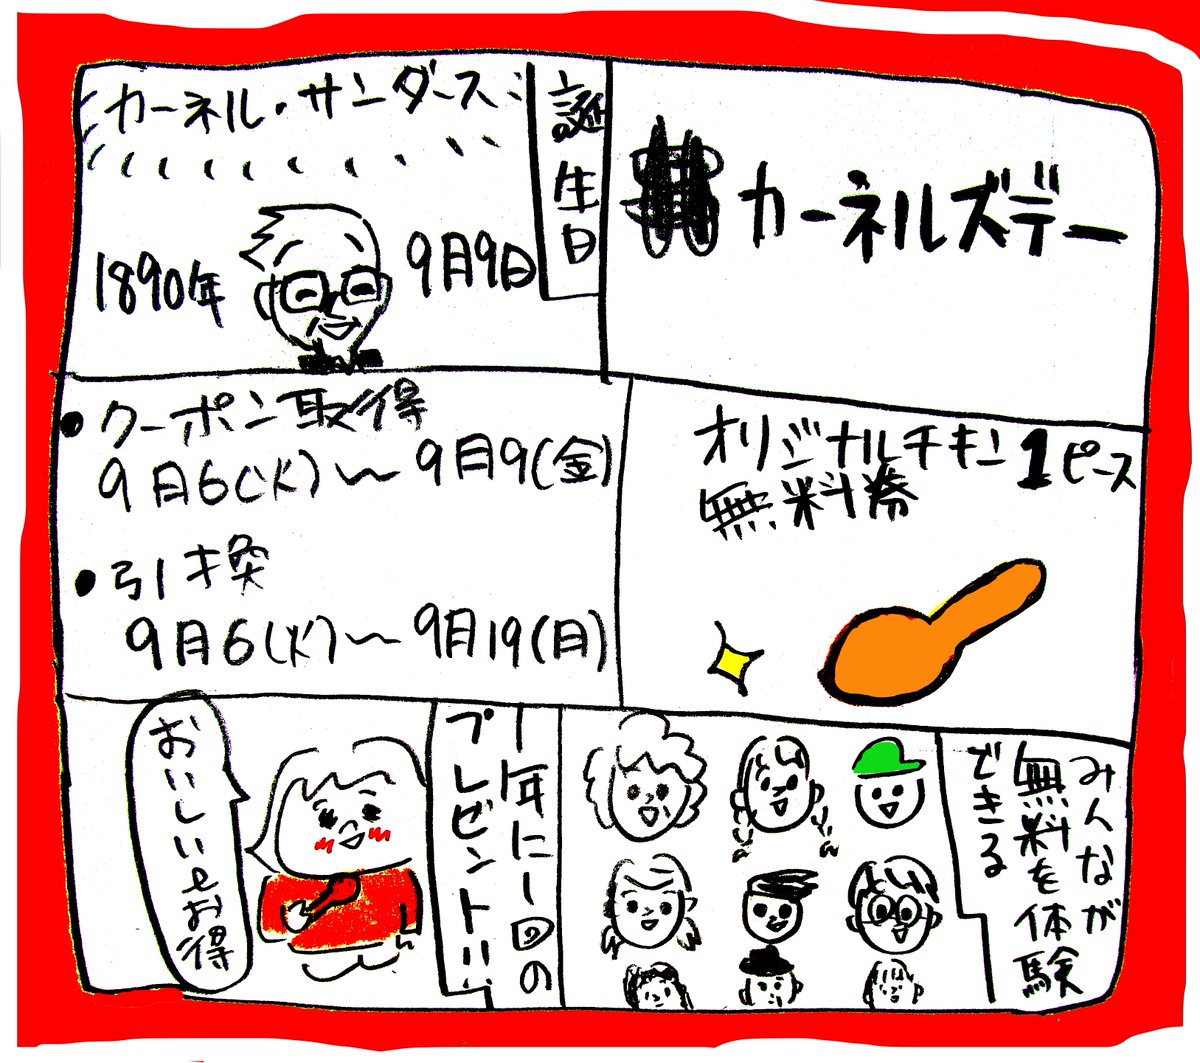 カーネルズデー
カーネル・サンダース
誕生日
1890年
9月9日
オリジナルチキン1ピース
無料券
・クーポン取得
9月6(火)〜9月9(金)
・引き換
9月6(火)〜9月19(月)
みんなが
無料を体験
できる
一年に一回の
プレゼント!!
おいしいとお得